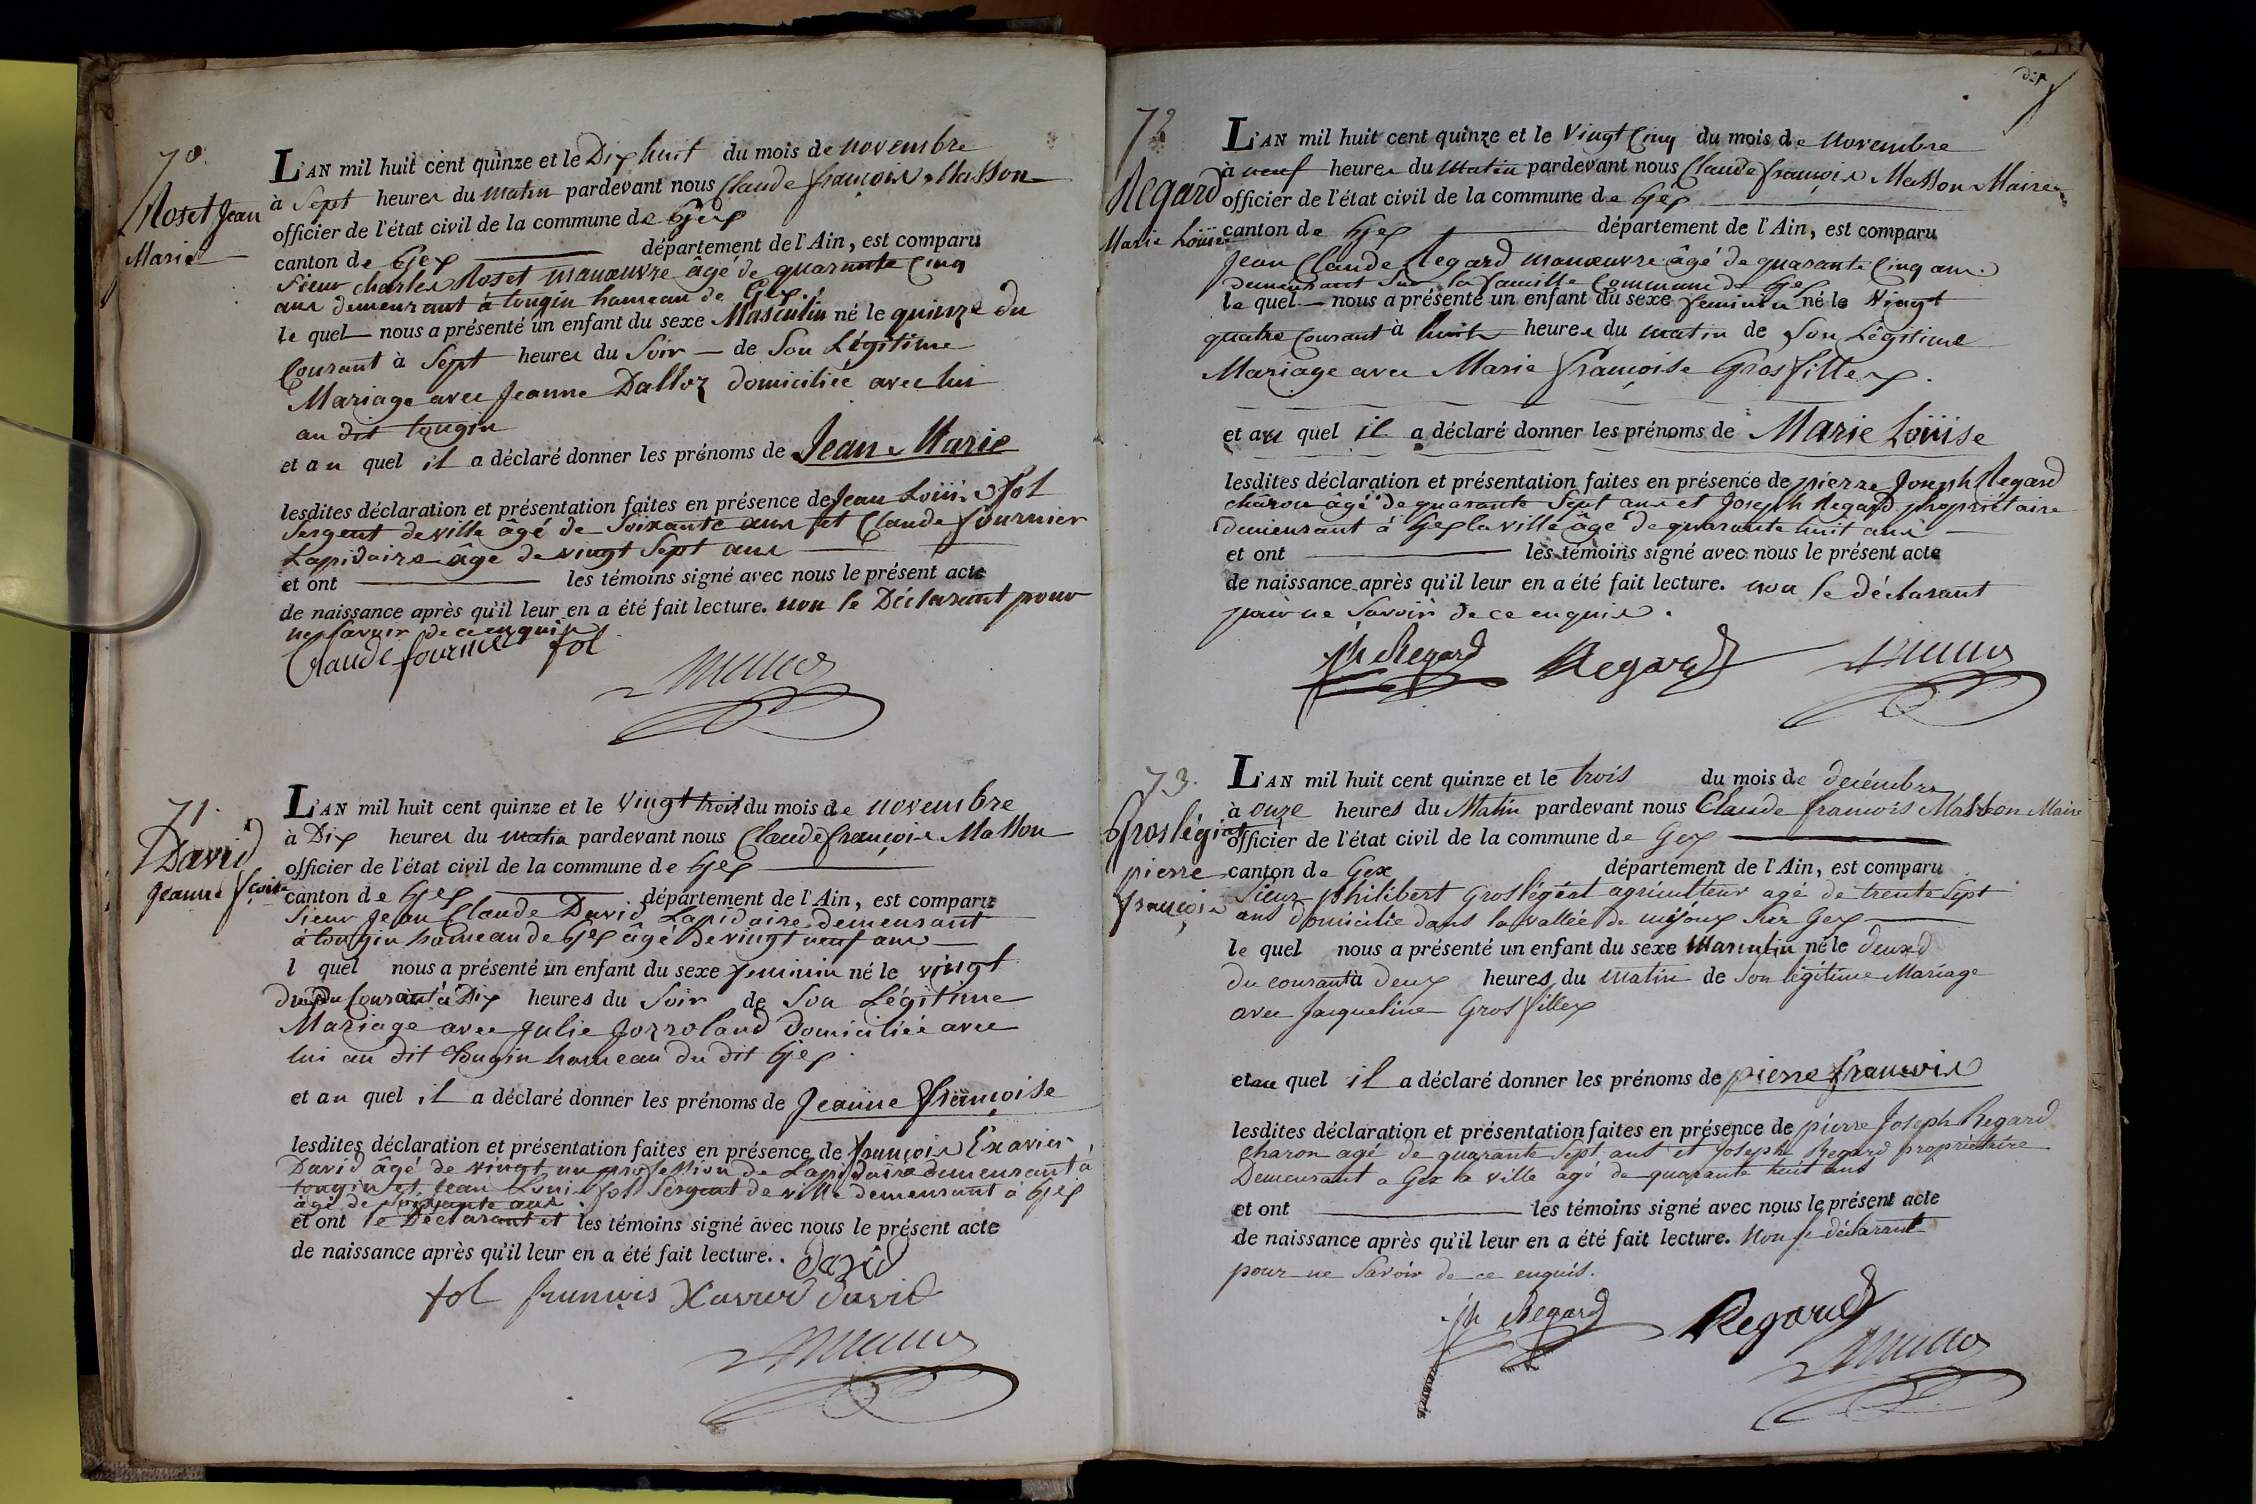 70.
Roset Jean
Marie
L'AN mil huit cent quinze et le Dix huit du mois de novembre
à Sept heures du matin pardevant nous Claude françois Masson
officier de l'état civil de la commune de Gex
canton de Gex département de l'Ain, est comparu
Sieur charles Roset manœuvre âgé de quarante Cinq
ans demeurant à tougin hameau de Gex
le quel nous a présenté un enfant du sexe Masculin né le quinze du
Courant à Sept heures du Soir de Son Légitime
Mariage avec Jeanne Dalloz domiciliée avec lui
au dit tougin
et au quel il a déclaré donner les prénoms de Jean Marie
lesdites déclaration et présentation faites en présence de Jean Loüis fol
Sergent de ville âgé de Soixante ans et Claude fournier
Lapidaire âgé de vingt Sept ans
et ont les témoins signé avec nous le présent acte
de naissance après qu'il leur en a été fait lecture. non le Déclarant pour
ne Savoir de ce enquis
Claude fournier fol
71.
David
Jeanne fçoise
L'AN mil huit cent quinze et le Vingt trois du mois de novembre
à Dix heures du matin pardevant nous Claude françois Masson
officier de l'état civil de la commune de Gex
canton de Gex département de l'Ain, est comparu
Sieur Jean Claude David Lapidaire demeurant
à tougin hameau de Gex âgé de vingt neuf ans
l quel nous a présenté un enfant du sexe feminin né le vingt
du Courant à Dix heures du Soir de Son Légitime
Mariage avec Julie Jozroland Domiciliée avec
lui au dit tougin hameau du dit Gex
et au quel il a déclaré donner les prénoms de Jeanne françoise
lesdites déclaration et présentation faites en présence de françois Exavier
David âgé de vingt un profession de Lapidaire demeurant à
tougin et Jean Louis fol Sergent de ville demeurant à Gex
âgé de Soixante ans
et ont le Déclarant et les témoins signé avec nous le présent acte
de naissance après qu'il leur en a été fait lecture. David
fol franuçis Xavier david
72
Regard
Marie Loüise
L'AN mil huit cent quinze et le Vingt Cinq du mois de Novembre
à neuf heures du Matin pardevant nous Claude françois Masson Maire
officier de l'état civil de la commune de Gex
canton de Gex département de l'Ain, est comparu
Jean Claude Regard manœuvre âgé de quarante Cinq ans
demeurant Sur la faucille Commune de Gex
le quel nous a présenté un enfant du sexe feminin né le Vingt
quatre Courant à huit heures du matin de Son Légitime
Mariage avec Marie françoise Grosfillex.
et au quel il a déclaré donner les prénoms de Marie Loüise
lesdites déclaration et présentation faites en présence de pierre Joseph Regard
charon âgé de quarante Sept ans et Joseph Regard propriétaire
demeurant à Gex la ville âgé de quarante huit ans
et ont les témoins signé avec nous le présent acte
de naissance après qu'il leur en a été fait lecture. non le déclarant
pour ne Savoir de ce enquis.
jh Regard Regard
73.
Groslégiat
pierre
françois
L'AN mil huit cent quinze et le trois du mois de decémbre
à onze heures du Matin pardevant nous Claude françois Masson Maire
officier de l'état civil de la commune de Gex
canton de Gex département de l'Ain, est comparu
Sieur philibert Groslégiat agriculteur agé de trente Sept
ans domicilié dans la vallée de mijoux sur Gex
le quel nous a présenté un enfant du sexe Masculin né le deux
du courant à deux heures du matin de Son légitime Mariage
avec Jacqueline Grosfillex
et au quel il a déclaré donner les prénoms de pierre françois
lesdites déclaration et présentation faites en présence de pierre Joseph Regard
charon agé de quarante Sept ans et Joseph Regard propriétaire
Demeurant a Gex la ville agé de quarante huit ans
et ont les témoins signé avec nous le présent acte
de naissance après qu'il leur en a été fait lecture. Non le déclarant
pour ne Savoir de ce enquis.
jh Regard Regard